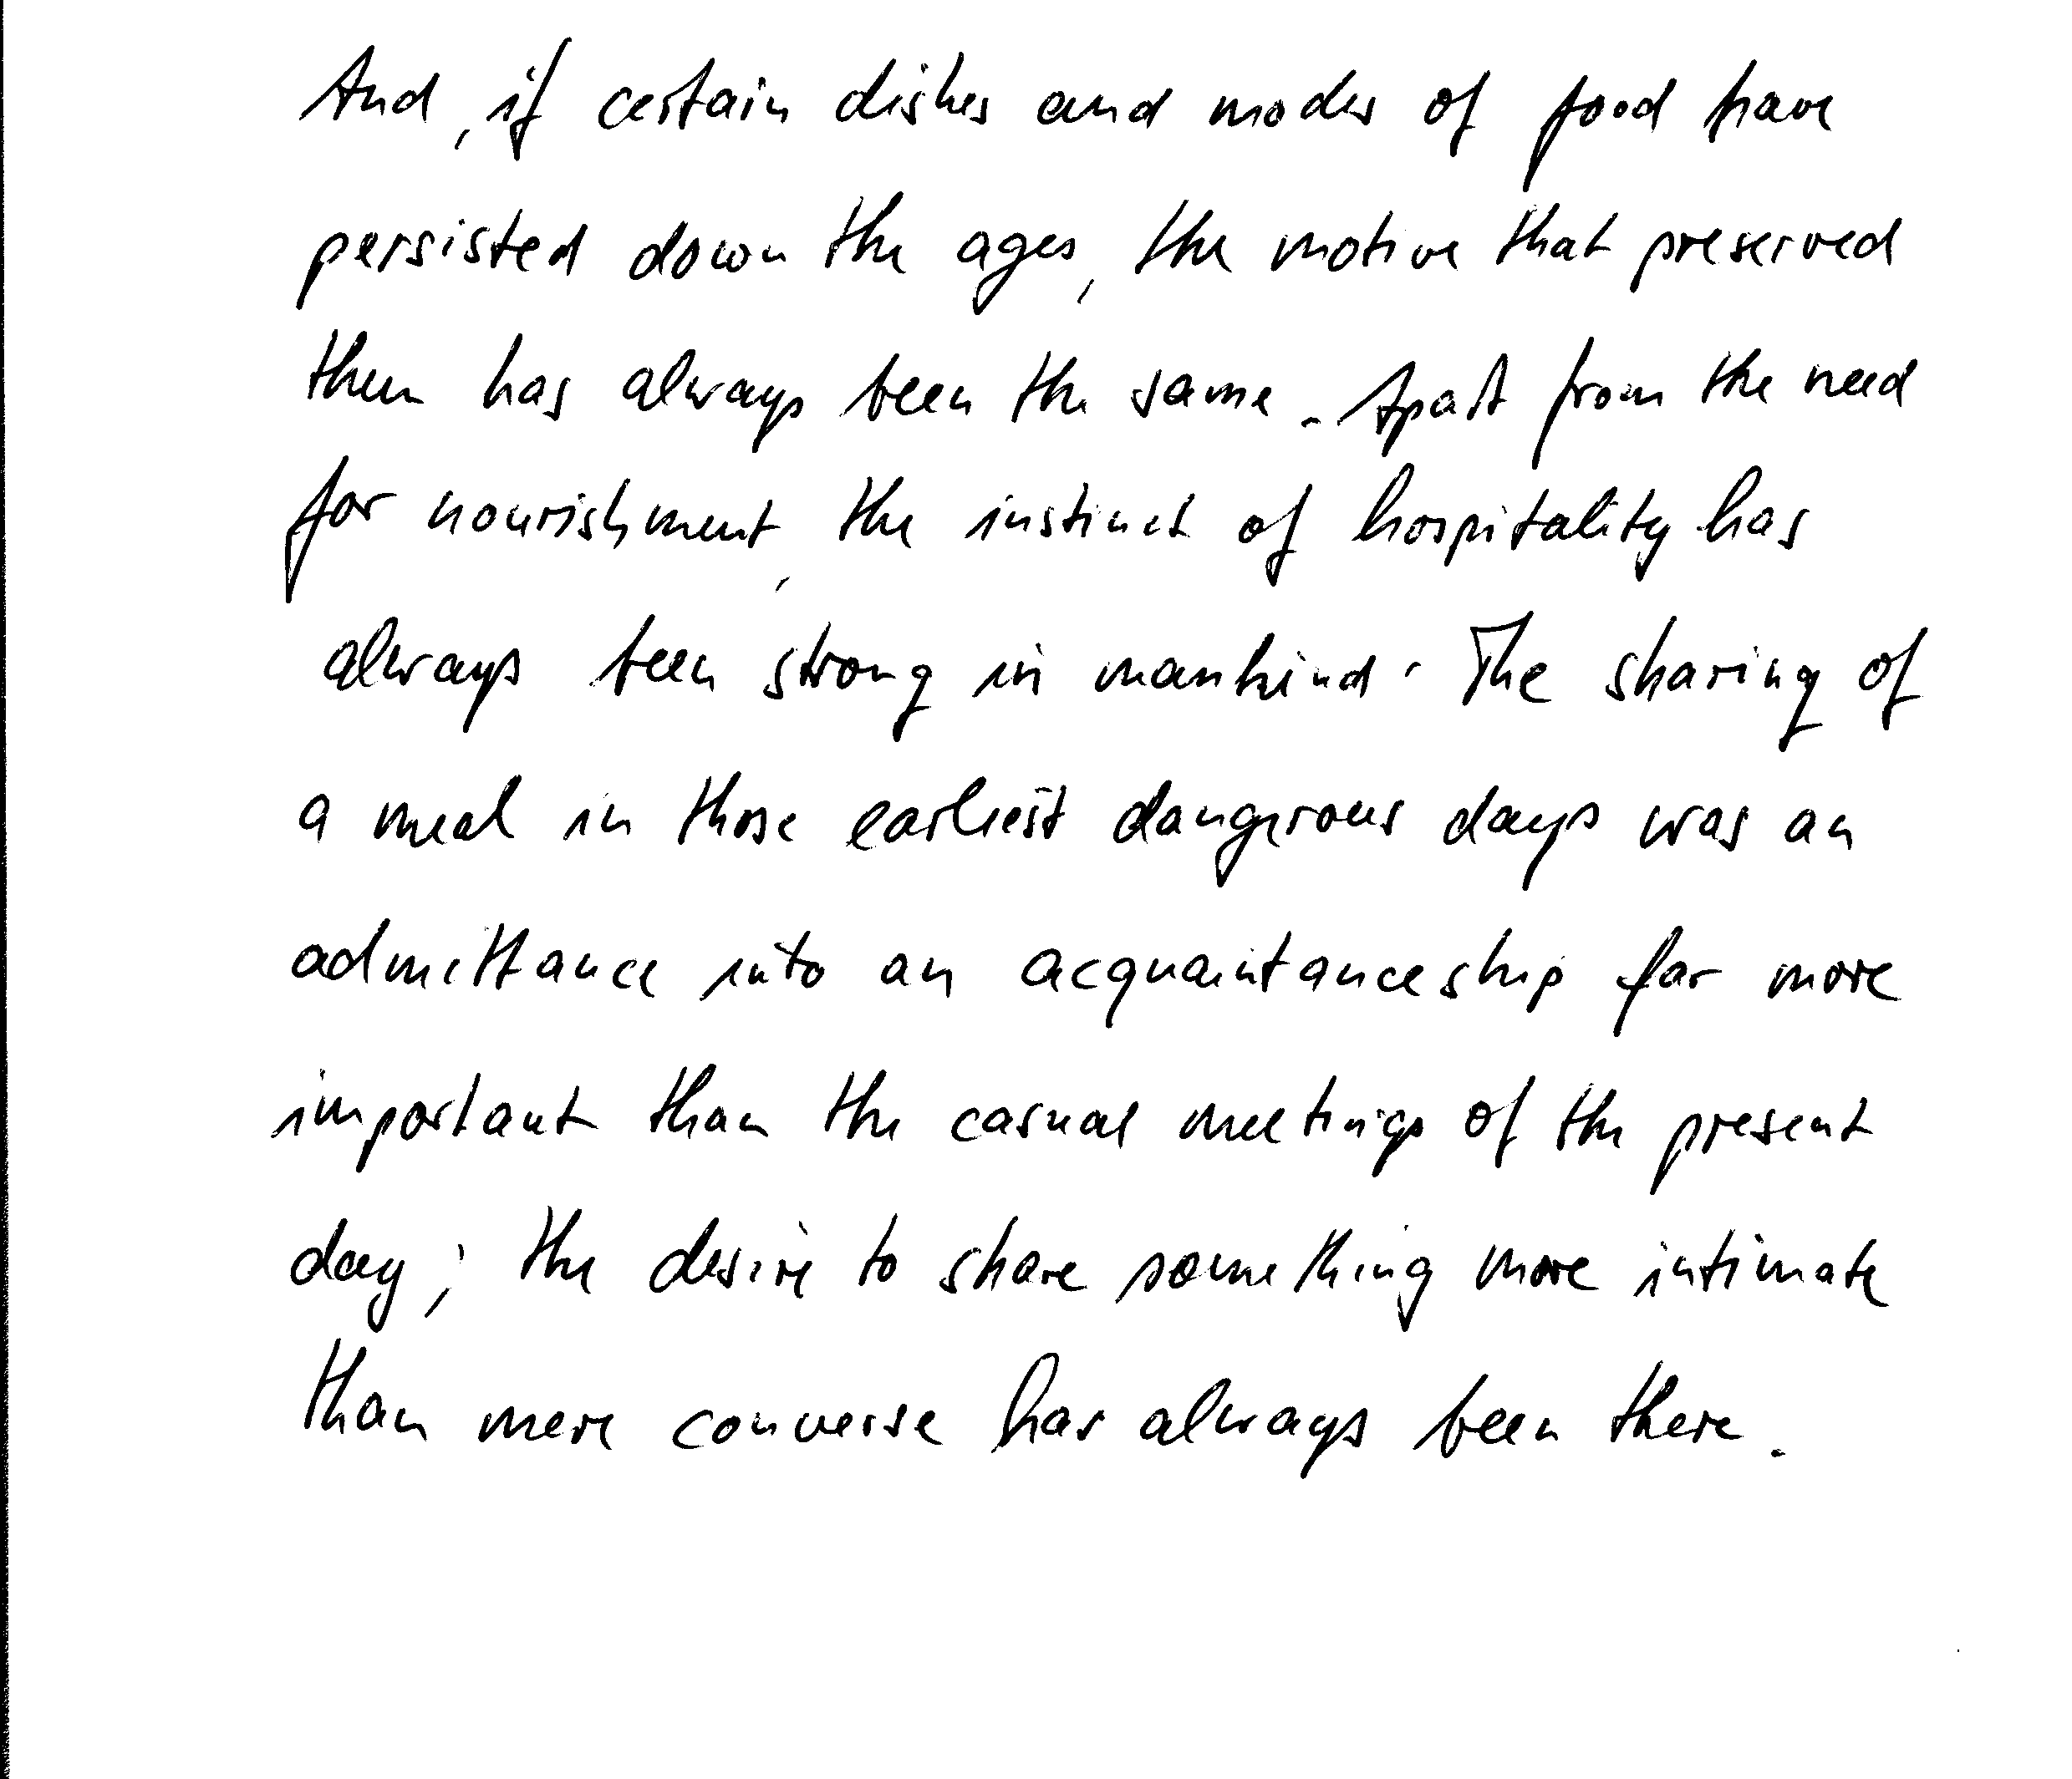 And, if certain dishes and modes of food have
persisted down the ages, the motive that preserved
them has always been the same. Apart from the need
for nourishment, the instinct of hospitality has
always been strong in mankind. The sharing of
a meal in those earliest dangerous days was an
admittance into an acquaintanceship far more
important than the casual meetings of the present
day; the desire to share something more intimate
than mere converse has always been there.